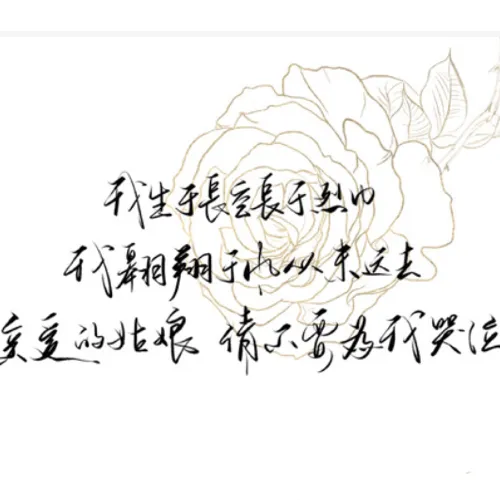 我生于長空長于烈日
我翱翔于风从未远去
亲爱的姑娘 请不要為我哭泣